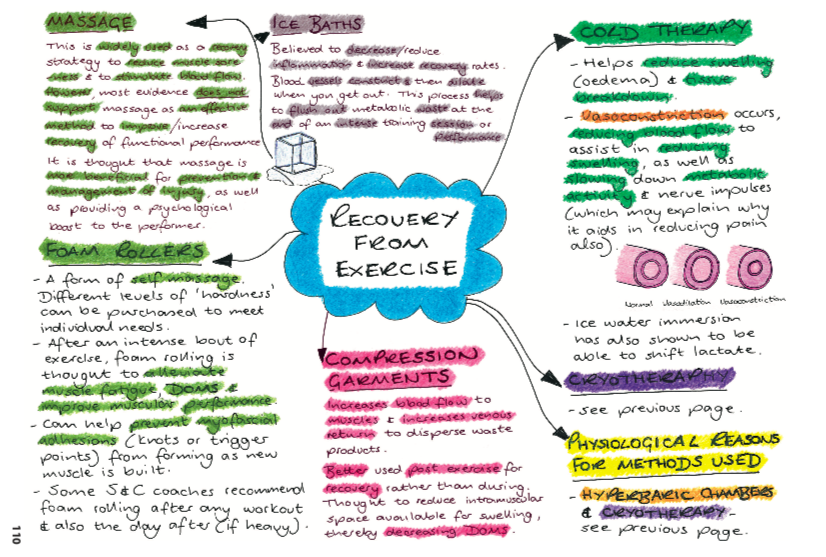 MASSAGE
This is widely used as a recovery
strategy to reduce muscle sore
-ness & to stimulate blood flow.
However, most evidence does not
support massage as an effective
method to improve/increase
recovery of functional performance
It is thought that massage is
more beneficial for prevention &
management of injury, as well
as providing a psychological
boost to the performer.
ICE BATHS
Believed to decrease/reduce
inflammation & increase recovery rates.
Blood vessels constrict & then dilate
when you get out. This process helps
to flush out metabolic waste at the
end of an intense training session or
performance
COLD THERAPY
- Helps reduce swelling
(oedema) & tissue
breakdown.
- Vasoconstriction occurs,
reducing blood flow to
assist in reducing
swelling, as well as
slowing down metabolic
activity & nerve impulses
(which may explain why
it aids in reducing pain
also).
Normal Vasodilation Vasoconstriction
- Ice water immersion
has also shown to be
able to shift lactate.
RECOVERY
FROM
EXERCISE
FOAM ROLLERS
- A form of self massage.
Different levels of 'hardness'
can be purchased to meet
individual needs.
- After an intense bout of
exercise, foam rolling is
thought to alleviate
muscle fatigue, DOMS &
improve muscular performance.
- Can help prevent myofascial
adhesions (knots or trigger
points) from forming as new
muscle is built.
- Some S&C coaches recommend
foam rolling after any workout
& also the day after (if heavy).
COMPRESSION
GARMENTS
Increases blood flow to
muscles & increases venous
return to disperse waste
products.
Better used post exercise for
recovery rather than during.
Thought to reduce intramuscular
space available for swelling,
thereby decreasing DOMS.
CRYOTHERAPHY
- see previous page.
PHYSIOLOGICAL REASONS
FOR METHODS USED
- HYPERBARIC CHAMBERS
& CRYOTHERAPY -
see previous page.
110